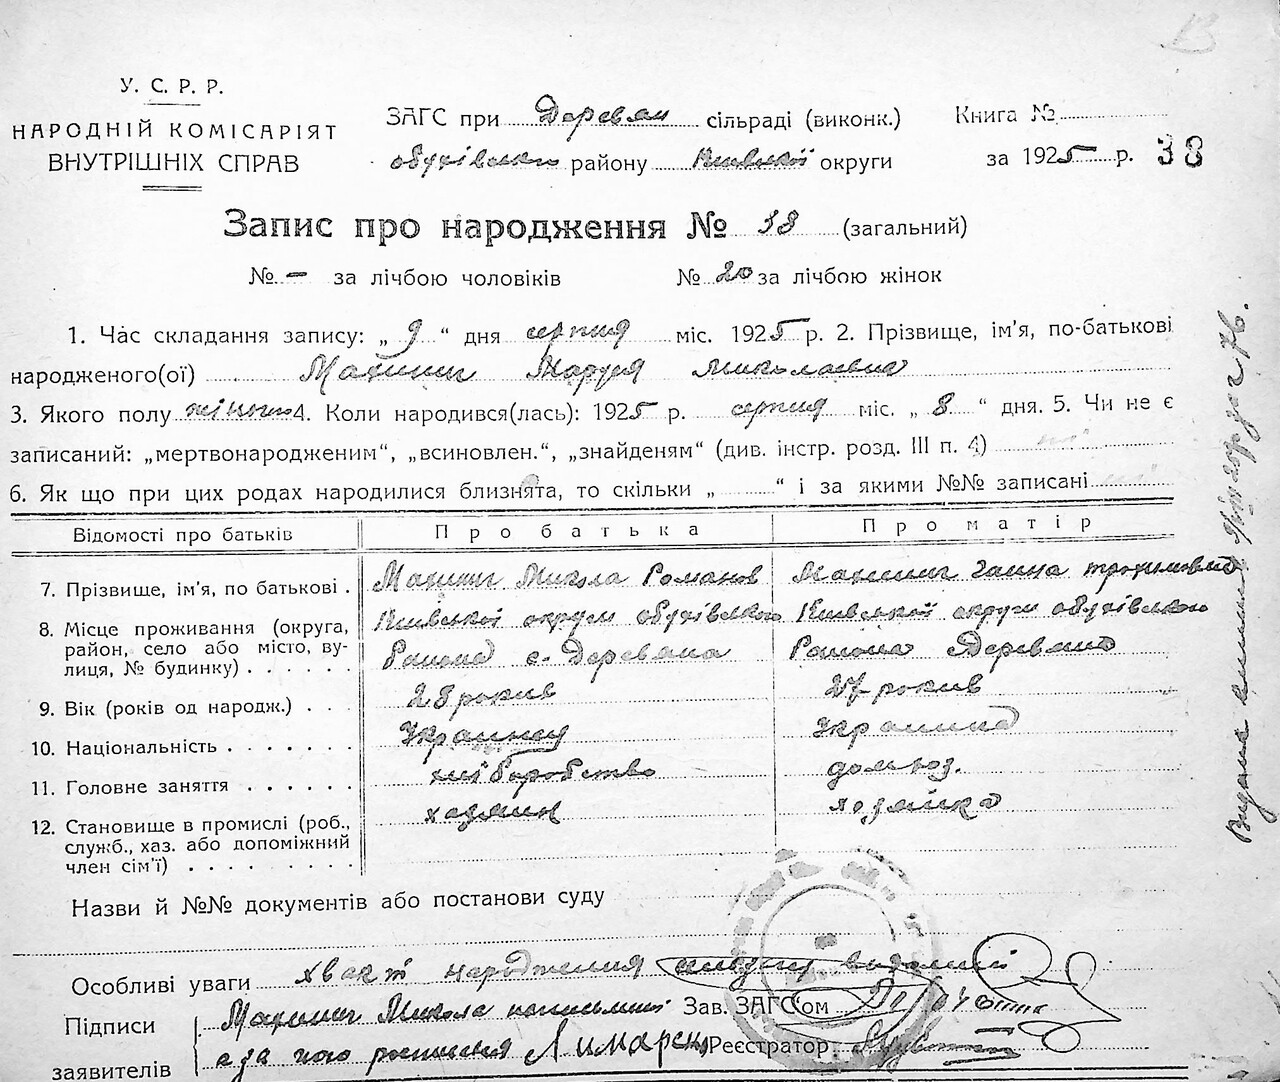 У. С. Р. Р.
НАРОДНІЙ КОМІСАРІЯТ
ВНУТРІШНІХ СПРАВ
ЗАГС при Деревян сільраді (виконк.)
обухівсько району Київської округи
Книга №
за 1925 р. 38
Запис про народження № 38 (загальний)
№ — за лічбою чоловіків № 20 за лічбою жінок
1. Час складання запису: „ 9 “ дня серпня міс. 1925 р. 2. Прізвище, ім'я, по-батькові
народженого(ої) Махинич Маруся Миколаевна
3. Якого полу жіночо 4. Коли народився(лась): 1925 р. серпня міс. „ 8 “ дня. 5. Чи не є
записаний: „мертвонародженим“, „всиновлен.“, „знайденям“ (див. інстр. розд. III п. 4) ні
6. Як що при цих родах народилися близнята, то скільки „ “ і за якими №№ записані
Відомості про батьків Про батька Про матір
7. Прізвище, ім'я, по батькові . Махинич Микола Романов Махинич Ганна трохимовна
8. Місце проживання (округа, район, село або місто, вулиця, № будинку) . . . . . Київської округи обухівсько Київської округи обухівсько
Района с. Деревяна Района Деревяна
9. Вік (років од народж.) . . . 28 рокив 27 рокив
10. Національність . . . . . . . Украинец Украинка
11. Головне заняття . . . . . . хліборобство домгоз.
12. Становище в промислі (роб., служб., хаз. або допоміжний член сім'ї) . . . . . . . . . хазяин хозяйка
Назви й №№ документів або постанови суду
Особливі уваги народження
Підписи
заявителів
Махинич Микола неписьмений Зав. ЗАГС'ом
а за його росписався Лимарен Реєстратор
Видана